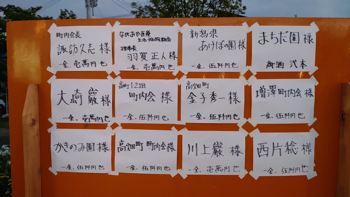 町内会長
諏訪久志 様
一金、壱萬円也
理事長
羽賀正人 様
一金、壱萬円也
新潟県
あけぼの園 様
一金、伍阡円也
まちだ園 様
清酒 弐本
大嶋巌 様
一金、伍阡円也
町内会 様
一金、伍阡円也
金子秀一 様
一金、伍阡円也
町内会 様
一金、伍阡円也
かきのみ園 様
一金、伍阡円也
町内会 様
一金、伍阡円也
川上巌 様
一金、壱萬円也
西片総 様
一金、伍阡円也